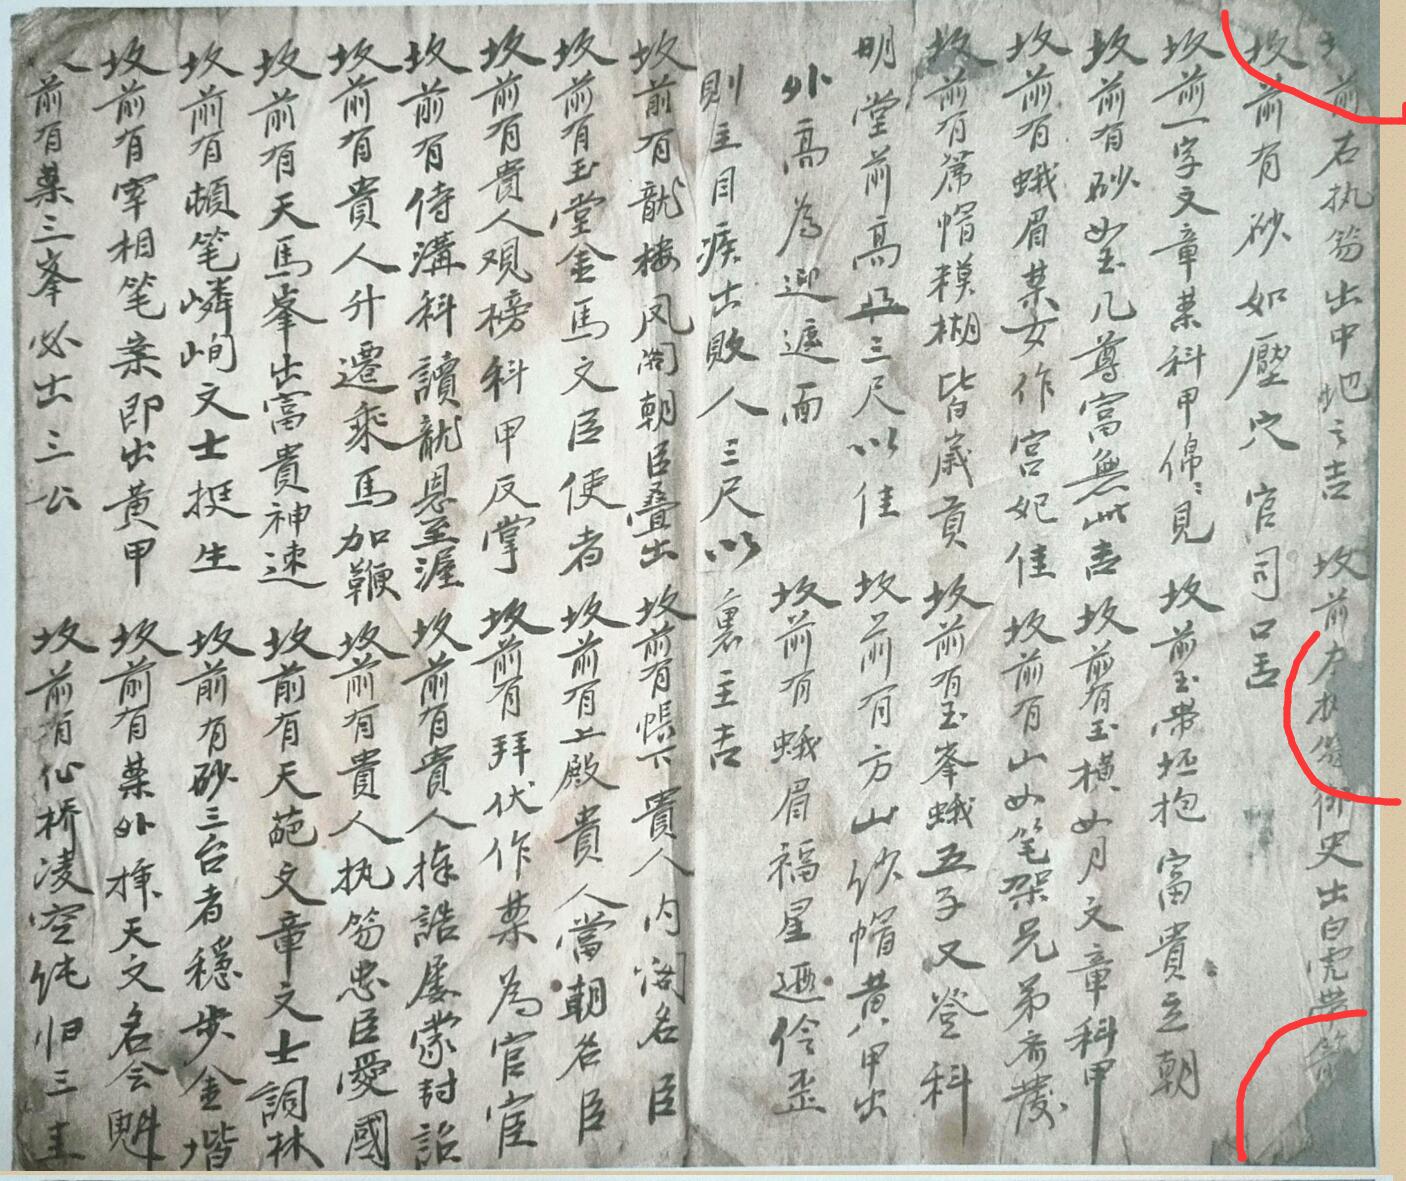 前右执笏出中地之吉 坟前左执笏御史出白虎帶箭
坟前有砂如壓穴 官司口舌
坟前一字文章案科甲綿〻見 坟前玉帶坯抱富貴立朝
坟前有砂如玉几尊富無此吉 坟前有玉橫如月文章科甲
坟前有蛾眉案女作宫妃佳 坟前有山如笔架兄弟齐發
坟前有席帽模糊皆歲貢 坟前有玉峯蛾五子又登科
明堂前高 三尺以佳 坟前有方山纱帽黄甲出
外高為迎遮面 坟前有蛾眉福星 伶歪
則主目疾出敗人三尺以裏主吉
坟前有龍楼凤阁朝臣叠出 坟前有帳下貴人内阁名臣
坟前有玉堂金馬文臣使者 坟前有上殿貴人當朝名臣
坟前有貴人观榜科甲反掌 坟前有拜伏作案為官宦
坟前有侍溝科讀龍恩至渥 坟前有貴人捧誥屡蒙封詔
坟前有貴人升遷乘馬加鞭 坟前有貴人执笏忠臣愛國
坟前有天馬峯出富貴神速 坟前有天葩文章文士詞林
坟前有頓笔嶙峋文士挺生 坟前有砂三台者穩步金堦
坟前有宰相笔案即出黄甲 坟前有案外揮天文名会魁
前有案三峯必出三公 坟前有仙桥凌空纯归三圭